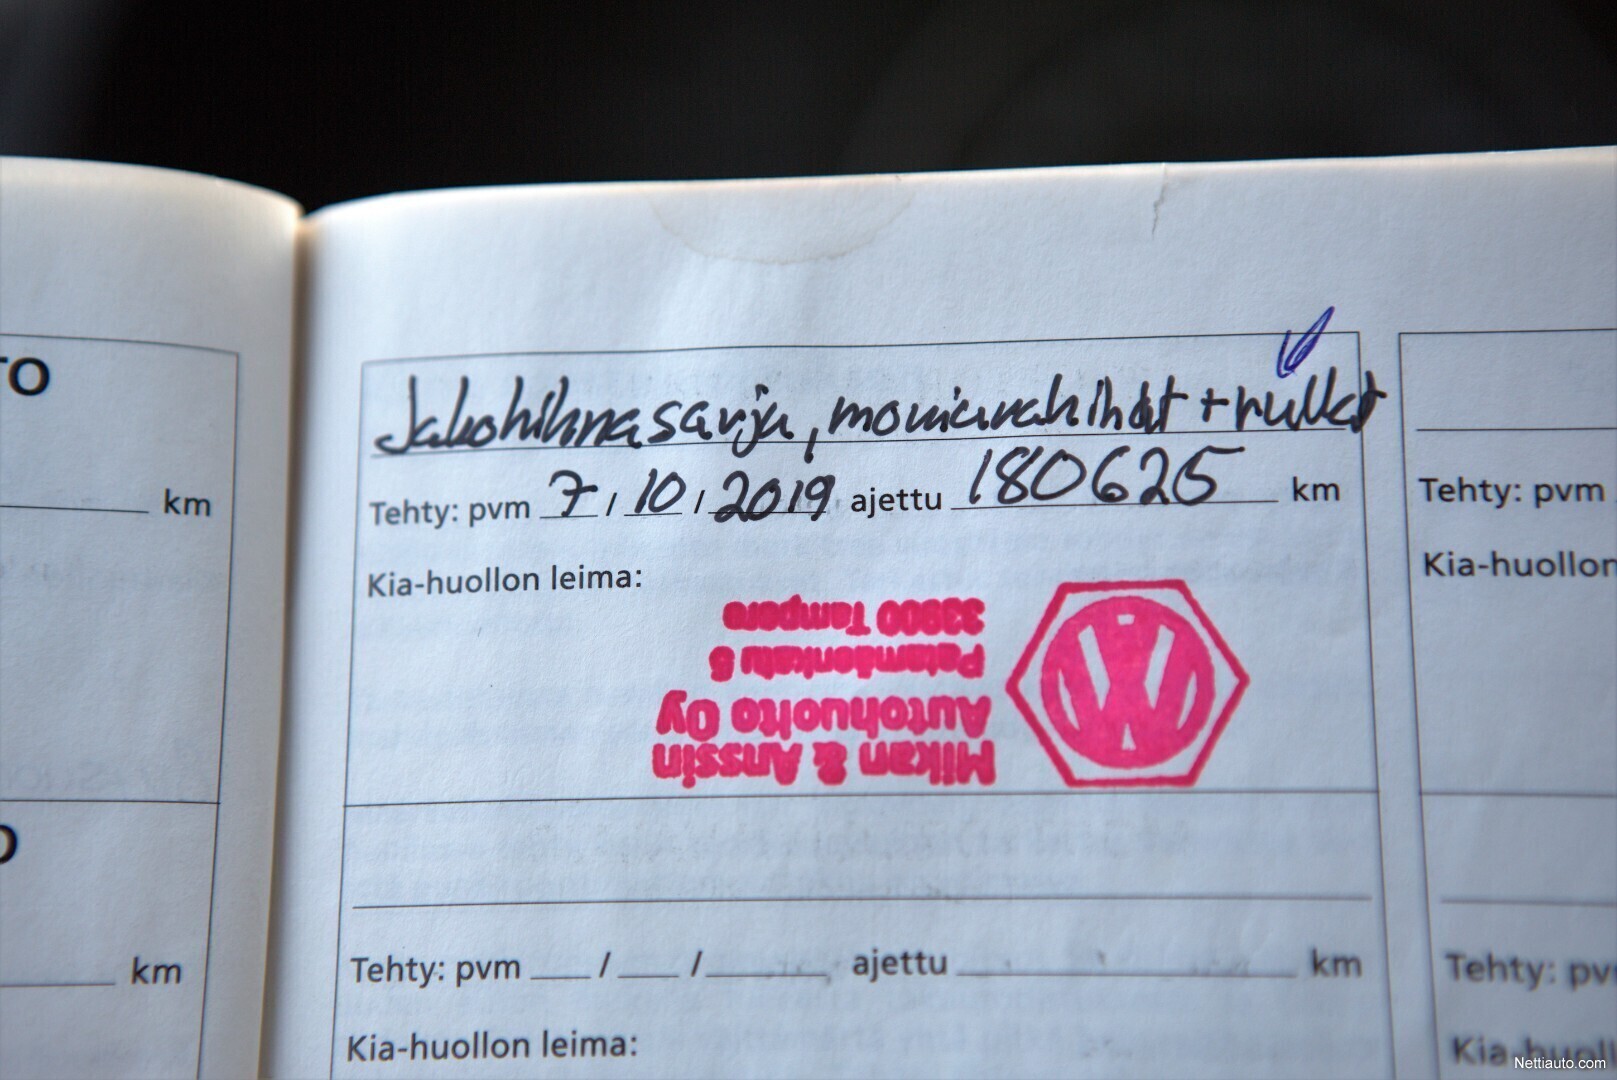 TO
km
Jakohihnasarja, moniurahihnat + rullat
Tehty: pvm 7 / 10 / 2019 ajettu 180625 km
Kia-huollon leima:
Mikan & Anssin
Autohuolto Oy
33900 Tampere
km
Tehty: pvm __ / __ / ____ ajettu ________ km
Kia-huollon leima:
Tehty: pvm
Kia-huollon
Tehty: pv
Kia-huoll
Nettiauto.com